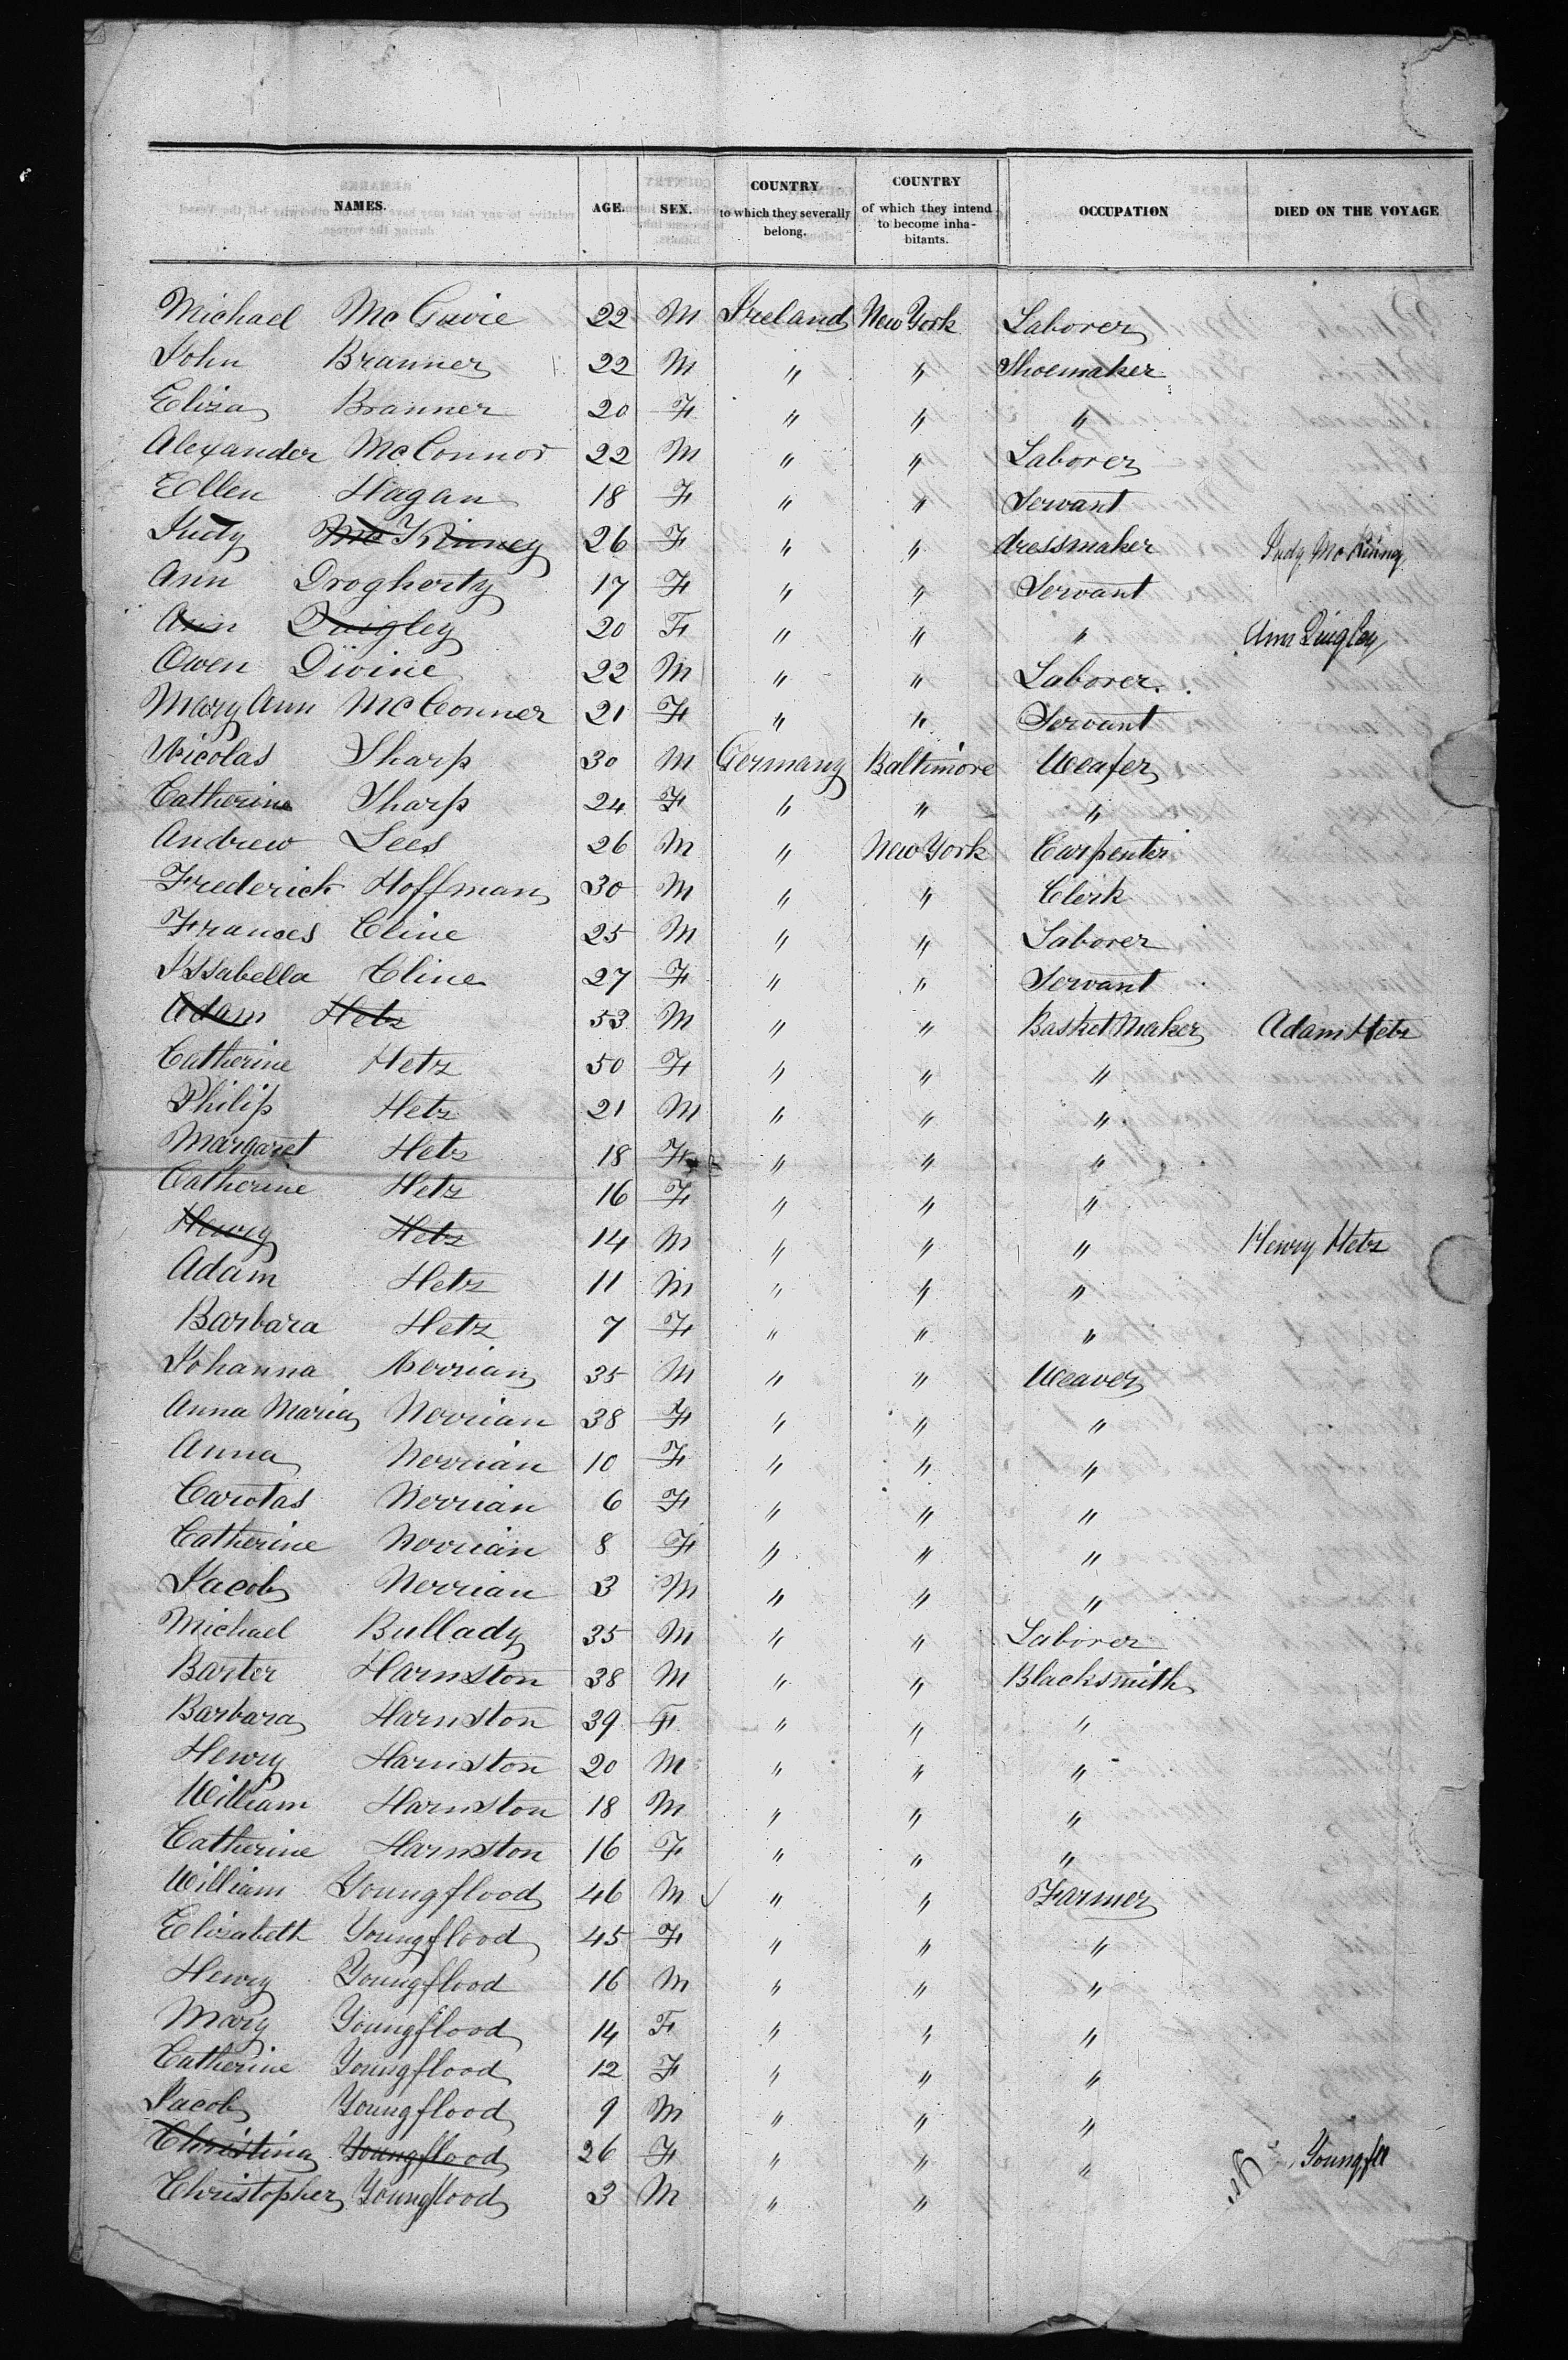 NAMES. AGE. SEX. COUNTRY to which they severally belong. COUNTRY of which they intend to become inhabitants. OCCUPATION DIED ON THE VOYAGE
Michael McGuvie 22 M Ireland New York Laborer
John Branner 22 M " " Shoemaker
Eliza Branner 20 F " " "
Alexander McConnor 22 M " " Laborer
Ellen Hagan 18 F " " Servant
Judy McKinney 26 F " " dressmaker Judy McKinny
Ann Drogherty 17 F " " Servant
Ann Quigley 20 F " " " Ann Quigley
Owen Divine 22 M " " Laborer
Mary Ann McConner 21 F " " Servant
Nicolas Sharp 30 M Germany Baltimore Weafer
Catherine Sharp 24 F " " "
Andrew Lees 26 M " New York Carpenter
Frederick Hoffman 30 M " " Clerk
Frances Cline 25 M " " Laborer
Issabella Cline 27 F " " Servant
Adam Hetz 53 M " " Basket Maker Adam Hetz
Catherine Hetz 50 F " " "
Philip Hetz 21 M " " "
Margaret Hetz 18 F " " "
Catherine Hetz 16 F " " "
Henry Hetz 14 M " " " Henry Hetz
Adam Hetz 11 M " " "
Barbara Hetz 7 F " " "
Johanna Nerrian 35 M " " Weaver
Anna Maria Nerrian 38 F " " "
Anna Nerrian 10 F " " "
Carotas Nerrian 6 F " " "
Catherine Nerrian 8 F " " "
Jacob Nerrian 3 M " " "
Michael Bullady 35 M " " Laborer
Barter Harnston 38 M " " Blacksmith
Barbara Harnston 39 F " " "
Henry Harnston 20 M " " "
William Harnston 18 M " " "
Catherine Harnston 16 F " " "
William Youngflood 46 M " " Farmer
Elizabeth Youngflood 45 F " " "
Henry Youngflood 16 M " " "
Mary Youngflood 14 F " " "
Catherine Youngflood 12 F " " "
Jacob Youngflood 9 M " " "
Christina Youngflood 26 F " " " Youngfl
Christopher Youngflood 3 M " "